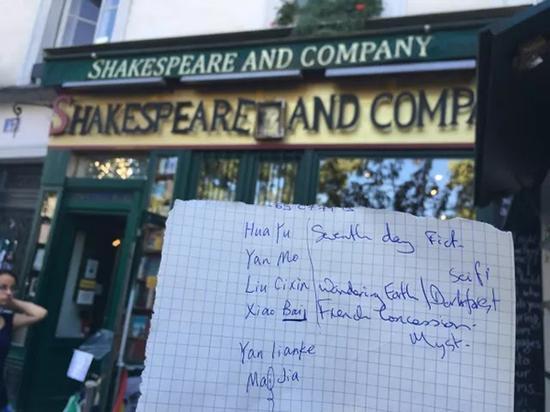 SHAKESPEARE AND COMPANY
SHAKESPEARE AND COMPA
Hua Yu / Seventh day Fict.
Yan Mo
Sci fi
Liu Cixin / Wandering Earth / Darkforest
Xiao Bai / French Concession.
Myst.
Yan lianke
Mai Jia